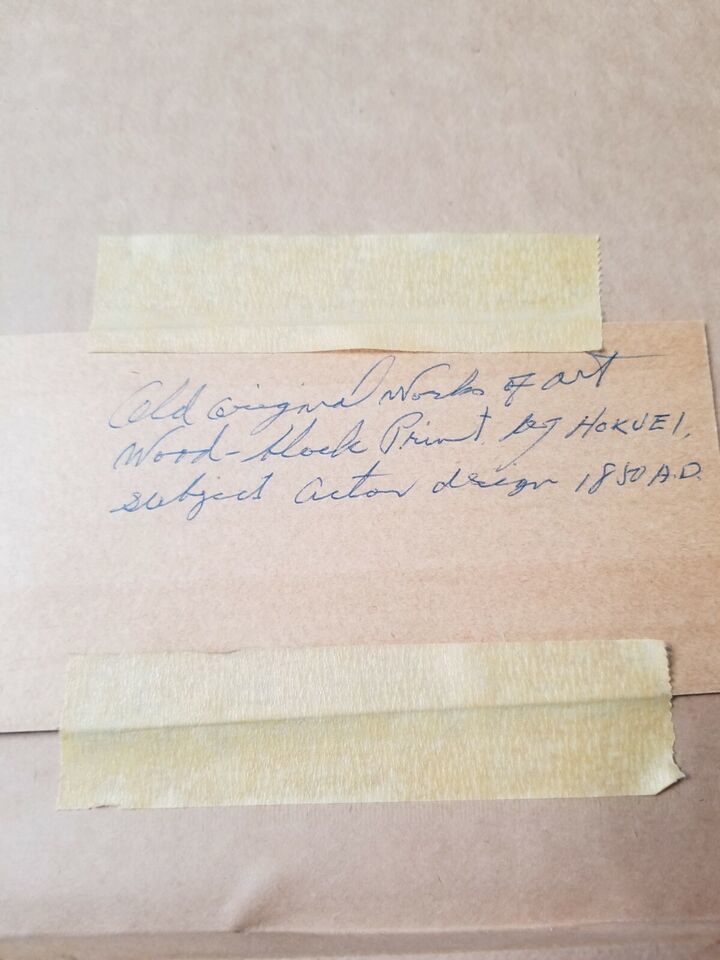 Old original Works of art
Wood-block Print by HOKUEI,
subject actor design 1850 A.D.